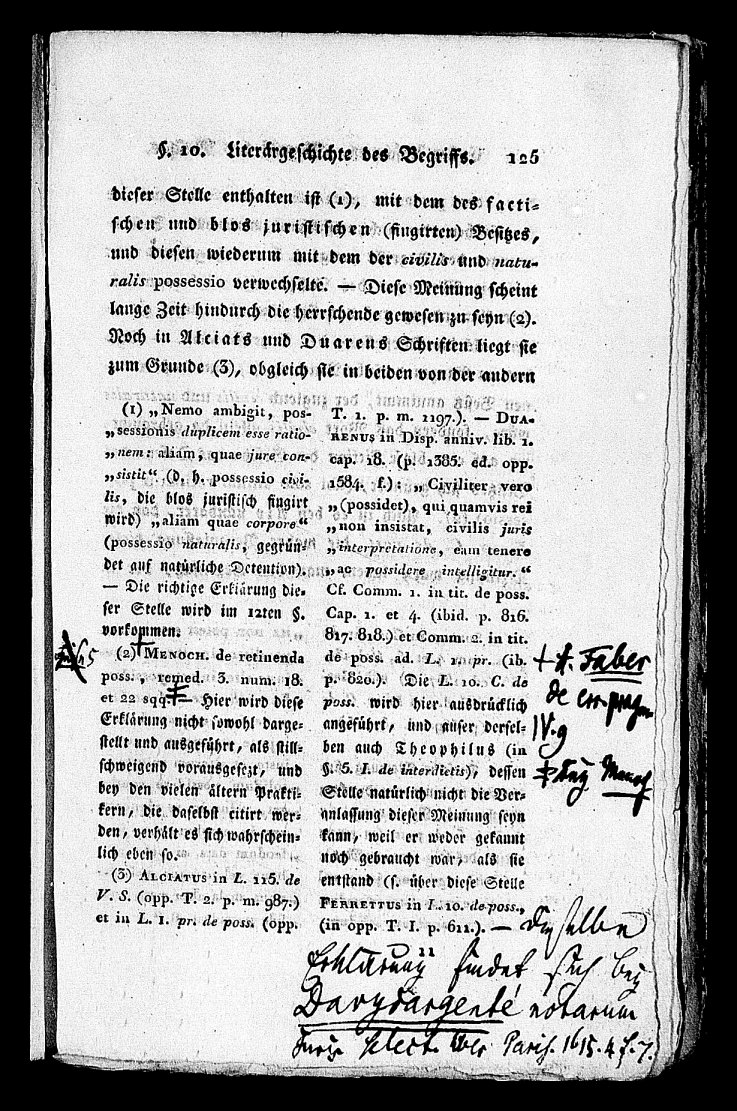 §. 10. Literärgeschichte des Begriffs. 125
dieser Stelle enthalten ist (1), mit dem des facti-
schen und blos juristischen (fingirten) Besitzes,
und diesen wiederum mit dem der civilis und natu-
ralis possessio verwechselte. — Diese Meinung scheint
lange Zeit hindurch die herrschende gewesen zu seyn (2).
Noch in Alciats und Duarens Schriften liegt sie
zum Grunde (3), obgleich sie in beiden von der andern
(1) „Nemo ambigit, pos-
„sessionis duplicem esse ratio-
„nem: aliam, quae jure con-
„sistit“ (d. h. possessio civi-
lis, die blos juristisch fingirt
wird) „aliam quae corpore“
(possessio naturalis, gegrün-
det auf natürliche Detention).
— Die richtige Erklärung die-
ser Stelle wird im 12ten §.
vorkommen.
(2) MENOCH. de retinenda
poss., remed. 3. num. 18.
et 22 sqq. — Hier wird diese
Erklärung nicht sowohl darge-
stellt und ausgeführt, als still-
schweigend vorausgesezt, und
bey den vielen ältern Prakti-
kern, die daselbst citirt wer-
den, verhält es sich wahrschein-
lich eben so.
(3) ALCIATUS in L. 115. de
V. S. (opp. T. 2. p. m. 987.)
et in L. 1. pr. de poss. (opp.
T. 1. p. m. 1197.). — DUA-
RENUS in Disp. anniv. lib. 1.
cap. 18. (p. 1385. ed. opp.
1584. f.): „Civiliter vero
„(possidet), qui quamvis rei
„non insistat, civilis juris
„interpretatione, eam tenere
„ac possidere intelligitur.“
Cf. Comm. 1. in tit. de poss.
Cap. 1. et 4. (ibid. p. 816.
817. 818.) et Comm. 2. in tit.
de poss. ad. L. 1. pr. (ib.
p. 820.). Die L. 10. C. de
poss. wird hier ausdrücklich
angeführt, und auser dersel-
ben auch Theophilus (in
§. 5. I. de interdictis), dessen
Stelle natürlich nicht die Ver-
anlassung dieser Meinung seyn
kann, weil er weder gekannt
noch gebraucht war, als sie
entstand (s. über diese Stelle
FERRETTUS in L. 10. de poss.,
(in opp. T. I. p. 611.). — Dieselbe
Erklärung findet sich bey
Davy d'argenté notarum
select. liber Paris. 1615. 4. f. 7.
11
A. Faber
de err. pragm.
IV. 9
Menoch